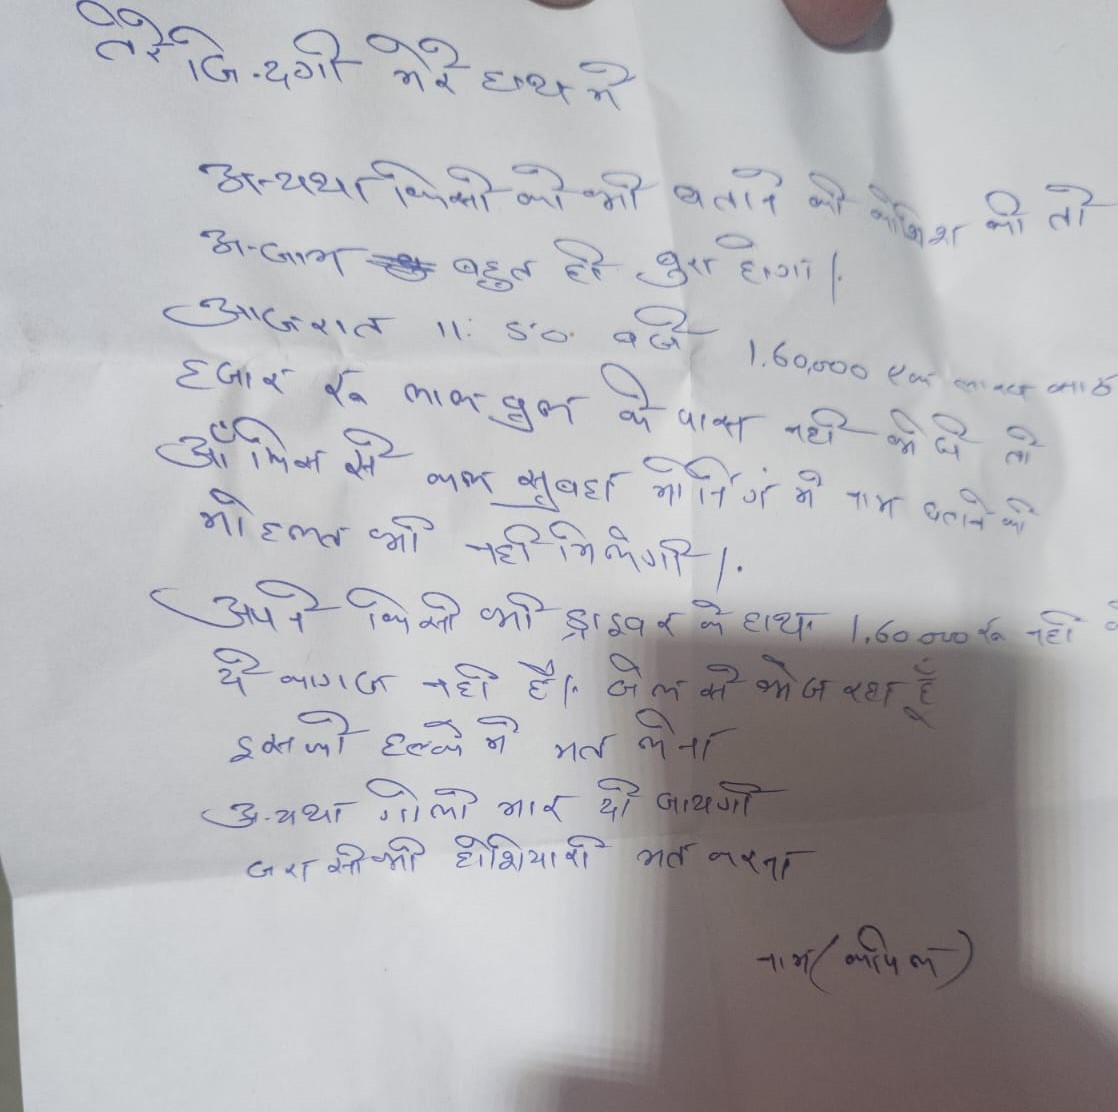 तेरे जिन्दगी मेरे हाथ मे
अन्यथा किसी को भी बताने की कोशिश की तो
अन्जाम बहुत ही बुरा होगा।
आज रात 11:50 बजे 1.60,000 एक लाख साठ
हजार रू लाल पुल के पास नही भेजे तो
ऑफिस से कल सुबहा मोर्निगं मे नाम बताने की
मोहलत भी नही मिलेगी।
अपने किसी भी ड्राइवर के हाथ 1.60000 रू नही
ये कागज नही है। जेल से भेज रहा हूँ
इसको हल्के मे मत लेना
अन्यथा गोली मार दी जायगी
जरा सी भी होशियारी मत करना
नाम (कपिल)